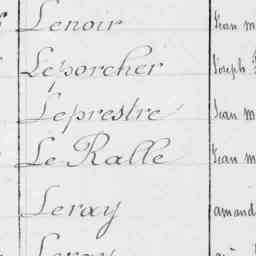 Lenoir Jean m
Leporcher Joseph
Leprestre Jean m
Le Ralle Jean m
Leray amand
Leray